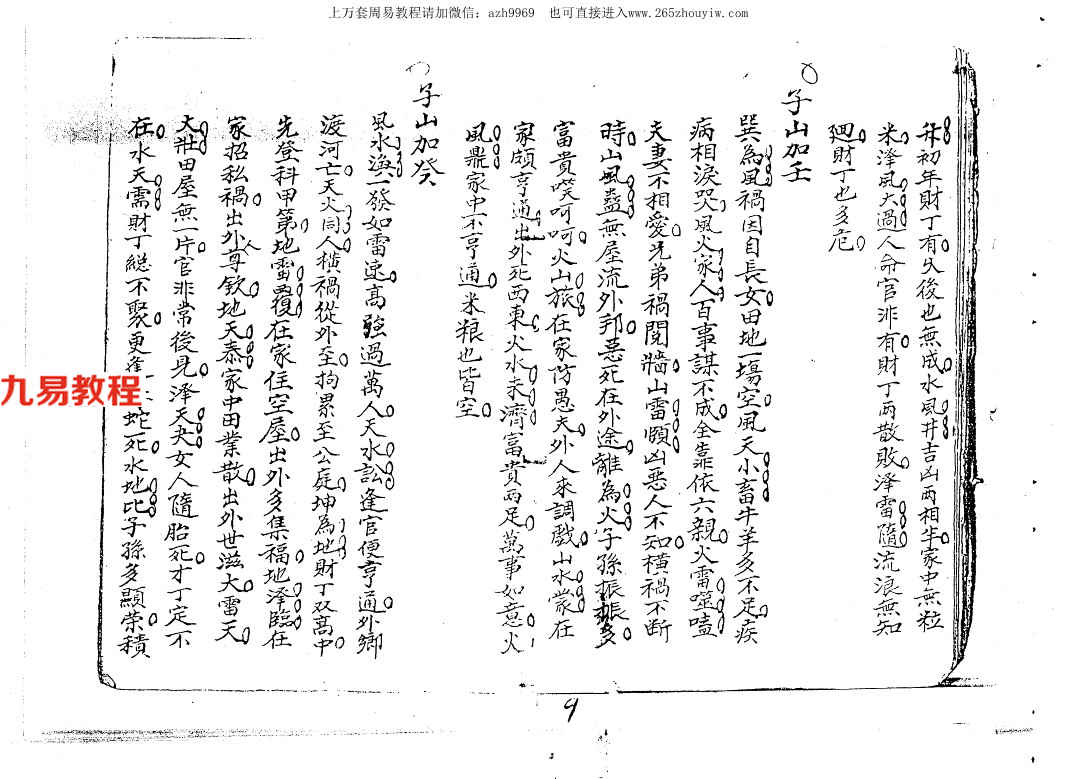 上万套周易教程请加微信：azh9969　也可直接进入www.265zhouyiw.com
升初年財丁有久後也無成水風井吉凶两相半家中無粒
米泽風大過人命官非有財丁两散敗泽雷隨流浪無知
廻財丁也多危
子山加壬
巽為風禍因自長女田地一場空風天小畜牛羊多不足疾
病相淚哭風火家人百事謀不成全靠依六親火雷噬嗑
夫妻不相愛兄弟禍閱牆山雷頤凶惡人不知橫禍不断
時山風蠱無屋流外邦惡死在外途離為火子孫振振多
富貴嘆呵呵火山旅在家防愚夫外人來調戲山水蒙在
家頗亨通出外死西東火水未濟富貴两足萬事如意火
風鼎家中不亨通米粮也皆空
子山加癸
風水渙一發如雷速高強過萬人天水訟逢官便亨通外鄉
渡河亡天火同人橫禍從外至拘累至公庭坤為地財丁双高中
先登科甲第地雷復在家住空屋出外多集福地泽臨在
家招私禍出外人尊欽地天泰家中田業散出外世滋大雷天
大壯田屋無一片官非常後見泽天夬女人隨胎死才丁定不
在水天需財丁總不聚更逢 蛇死水地比子孫多顯荣積
九易教程
9